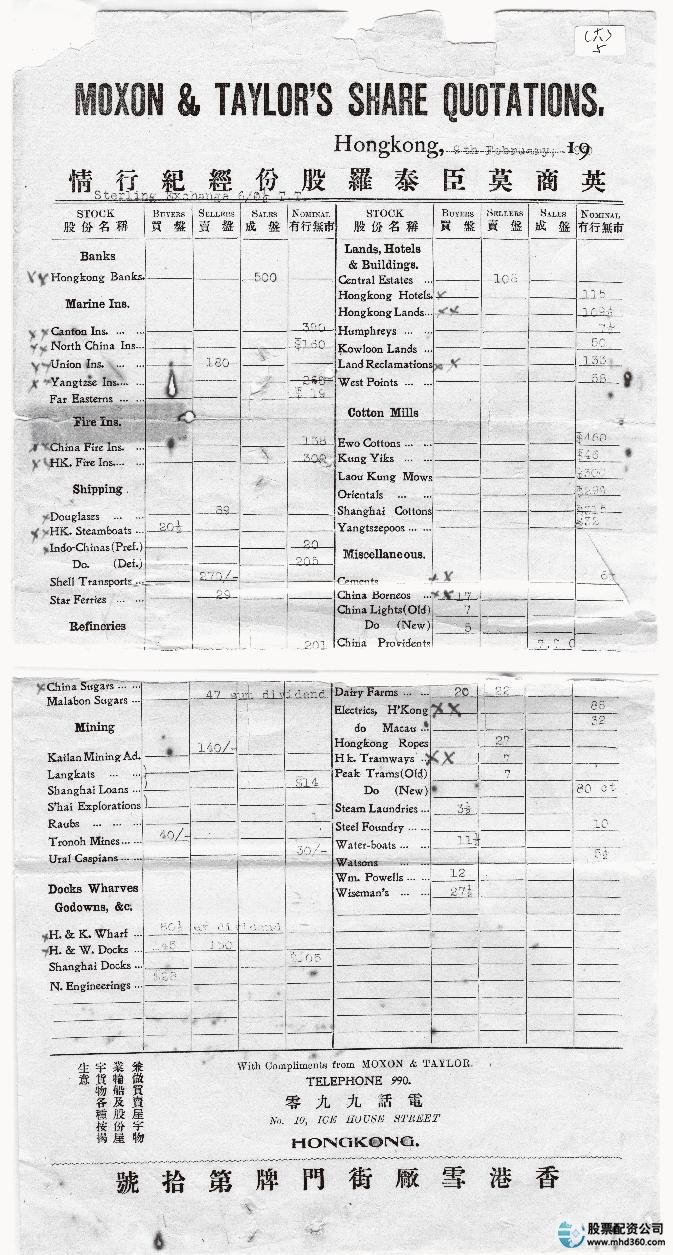 (六)
5
MOXON & TAYLOR'S SHARE QUOTATIONS.
Hongkong, 8th February, 19
英商莫臣泰羅股份經紀行情
Sterling Exchange T.T.
STOCK BUYERS SELLERS SALES NOMINAL
股份名稱 買盤 賣盤 成盤 有行無市
Banks
Hongkong Banks. 500
Marine Ins.
Canton Ins. ... ...
North China Ins... $160
Union Ins. ... ... 180
Yangtzse Ins.... ...
Far Easterns ... ...
Fire Ins.
China Fire Ins. ... 138
HK. Fire Ins.... ...
Shipping.
Douglases ... ... 39
HK. Steamboats ... 20½
Indo-Chinas (Pref.) 20
Do. (Def.) 205
Shell Transports... 270/-
Star Ferries ... ... 29
Refineries
201
China Sugars ... ...
Malabon Sugars ... 47 dividend
Mining
Kailan Mining Ad. 140/-
Langkats ... ...
Shanghai Loans ... $14
S'hai Explorations
Raubs ... ...
Tronoh Mines... ... 40/-
Ural Caspians... ... 30/-
Docks Wharves
Godowns, &c.
H. & K. Wharf ... dividend
H. & W. Docks ... 145 150
Shanghai Docks ... $105
N. Engineerings ...
STOCK BUYERS SELLERS SALES NOMINAL
股份名稱 買盤 賣盤 成盤 有行無市
Lands, Hotels
& Buildings.
Central Estates ...
Hongkong Hotels. 115
Hongkong Lands...
Humphreys ... ...
Kowloon Lands ... 50
Land Reclamations
West Points ... ...
Cotton Mills
Ewo Cottons ... ... $460
Kung Yiks ... ...
Laou Kung Mows $300
Orientals ... ...
Shanghai Cottons
Yangtszepoos ... ...
Miscellaneous.
Cements
China Borneos ... 17
China Lights(Old) 7
Do (New) 5
China Providents
Dairy Farms ... ... 20 22
Electrics, H'Kong 88
do Macau ... 32
Hongkong Ropes 27
Hk. Tramways ... 7
Peak Trams(Old) 7
Do (New) 80 ct
Steam Laundries ... 3½
Steel Foundry ... 10
Water-boats ... ...
Watsons ...
Wm. Powells ... ... 12
Wiseman's ... ... 27½
兼做買賣屋宇物
業輪船及股份屋
宇貨物各種按揭
生意
With Compliments from MOXON & TAYLOR.
TELEPHONE 990.
零九九話電
No. 10, ICE HOUSE STREET
HONGKONG.
號拾第牌門街廠雪港香
股票配资公司
www.mhd360.com